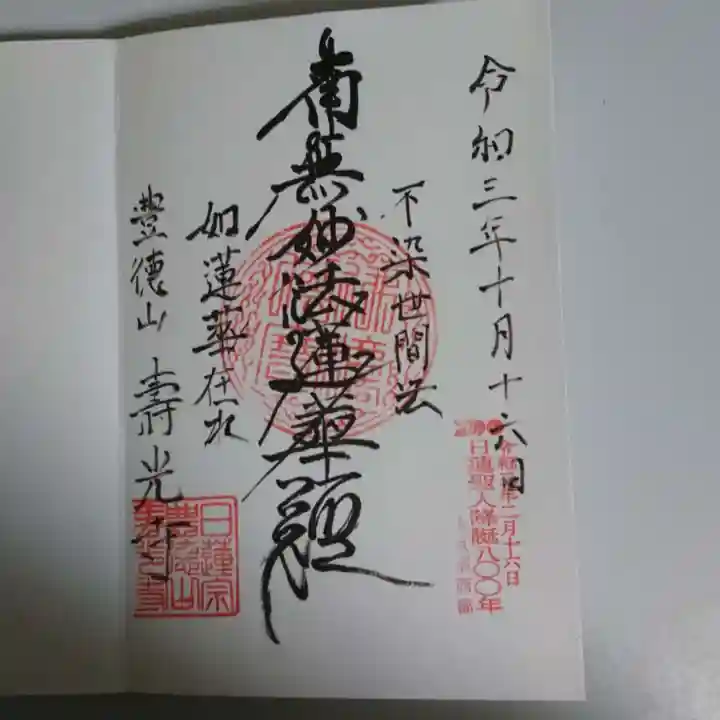 令和三年十月十六日
不染世間法
南無妙法蓮華経
如蓮華在水
豊徳山 壽光寺
令和三年二月十六日
日蓮聖人降誕八〇〇年
日蓮宗
豊徳山
壽光寺